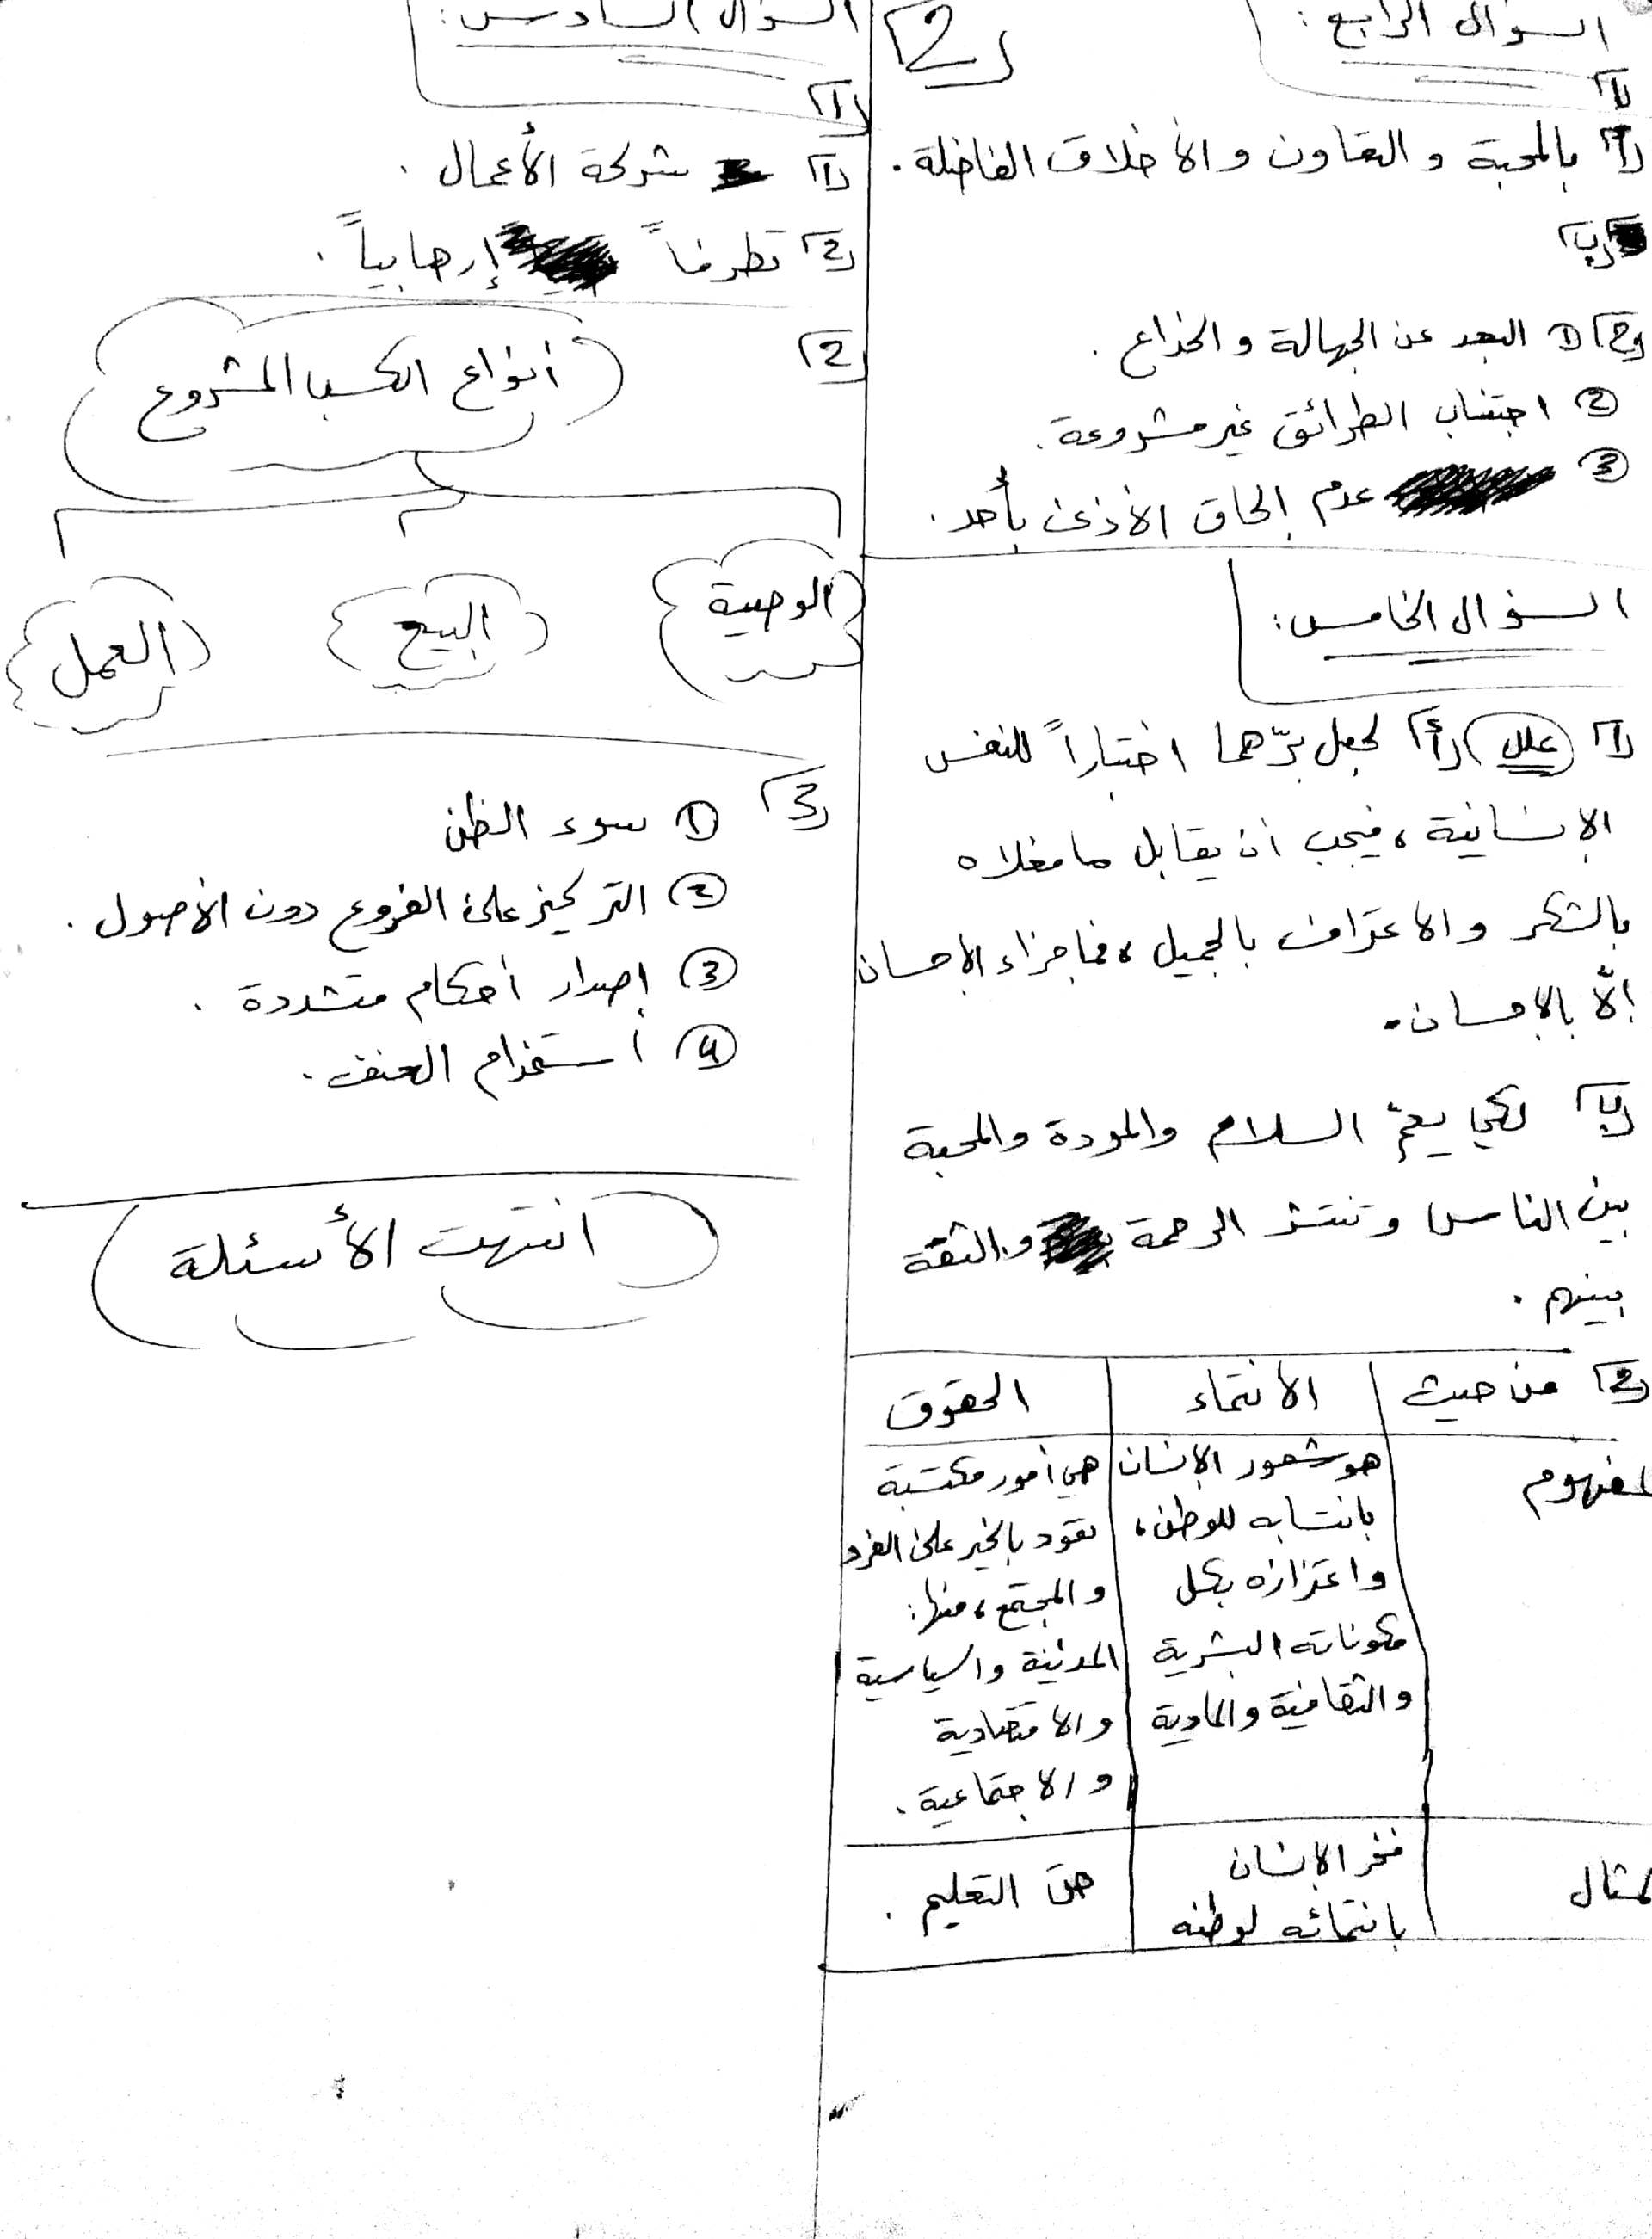 2
السؤال الرابع:
1
أ بالمحبة و التعاون و الأخلاق الفاضلة.
ب
2 1 البعد عن الجهالة و الخداع.
2 اجتناب الطرائق غير مشروعة.
3 عدم إلحاق الأذى بأحد.
السؤال الخامس:
1 علل أ لجعل برّهما اختباراً للنفس
الإنسانية، فيجب أن يقابل ما فعلاه
بالشكر و الاعتراف بالجميل، فما جزاء الإحسان
إلّا بالإحسان.
ب لكي يعمّ السلام والمودة والمحبة
بين الناس و تنتشر الرحمة و الثقة
بينهم.
2 من حيث | الانتماء | الحقوق
المفهوم
هو شعور الإنسان
بانتسابه للوطن،
واعتزازه بكل
مكوناته البشرية
و الثقافية و المادية
هي أمور مكتسبة
تعود بالخير على الفرد
و المجتمع، منها:
المدنية و السياسية
و الاقتصادية
و الاجتماعية.
المثال
فخر الإنسان
بانتمائه لوطنه
حق التعليم.
السؤال السادس:
1
1 شركة الأعمال.
2 تطرفاً إرهابياً.
2
أنواع الكسب المشروع
الوصية
البيع
العمل
3
1 سوء الظن
2 التركيز على الفروع دون الأصول.
3 إصدار أحكام متشددة.
4 استخدام العنف.
انتهت الأسئلة